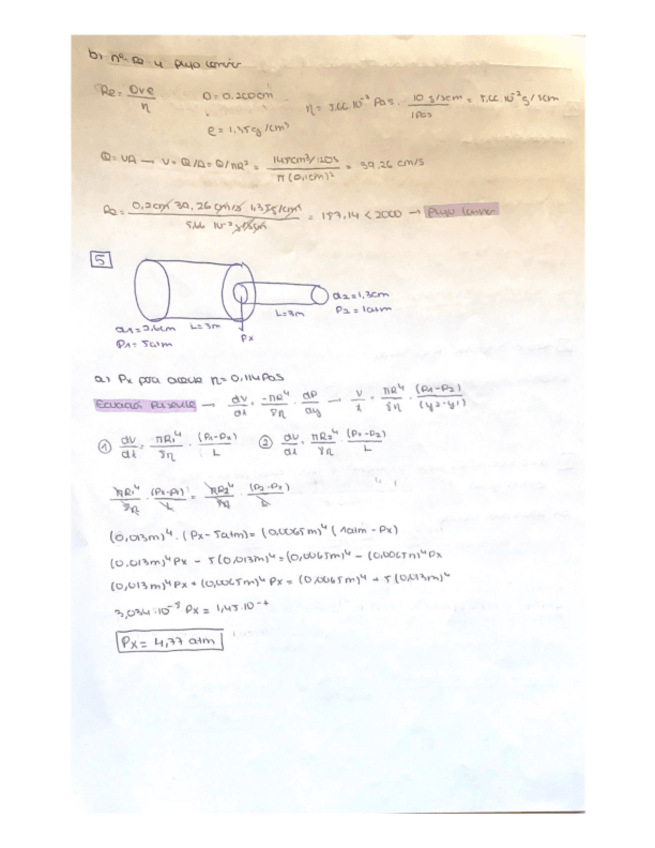 b) nº Re y flujo
Re = Dve / η D = 0.200cm η = 5,66·10⁻³ Pas · 10 g/scm / 1Pas = 5,66·10⁻² g/scm
ρ = 1,35g/cm³
Q = vA → v = Q/A = Q/πR² = 148cm³/120s / π(0,1cm)² = 39,26 cm/s
Re = 0,2cm 39,26 cm/s 1,35g/cm³ / 5,66 10⁻² g/scm = 187,14 < 2000 → Flujo
5
a₂ = 1,3cm
P₂ = 1atm
L = 3m
L = 3m
a₁ = 2,6cm
P₁ = 5atm
Px
a) Px para aceite η = 0,114 Pas
Ecuació Poiseuille → dV/dt = -πR⁴/8η · dP/dy → V/t = πR⁴/8η · (P₁-P₂)/(y₂-y₁)
① dV/dt = πR₁⁴/8η · (P₁-Px)/L ② dV/dt = πR₂⁴/8η · (Px-P₂)/L
πR₁⁴/8η · (Px-P₁)/L = πR₂⁴/8η · (P₂-Px)/L
(0,013m)⁴ · (Px - 5atm) = (0,0065m)⁴ (1atm - Px)
(0.013m)⁴Px - 5(0,013m)⁴ = (0,0065m)⁴ - (0,0065m)⁴Px
(0,013m)⁴Px + (0,0065m)⁴Px = (0.0065m)⁴ + 5(0,013m)⁴
3,034·10⁻⁸ Px = 1,45·10⁻⁷
Px = 4,77 atm